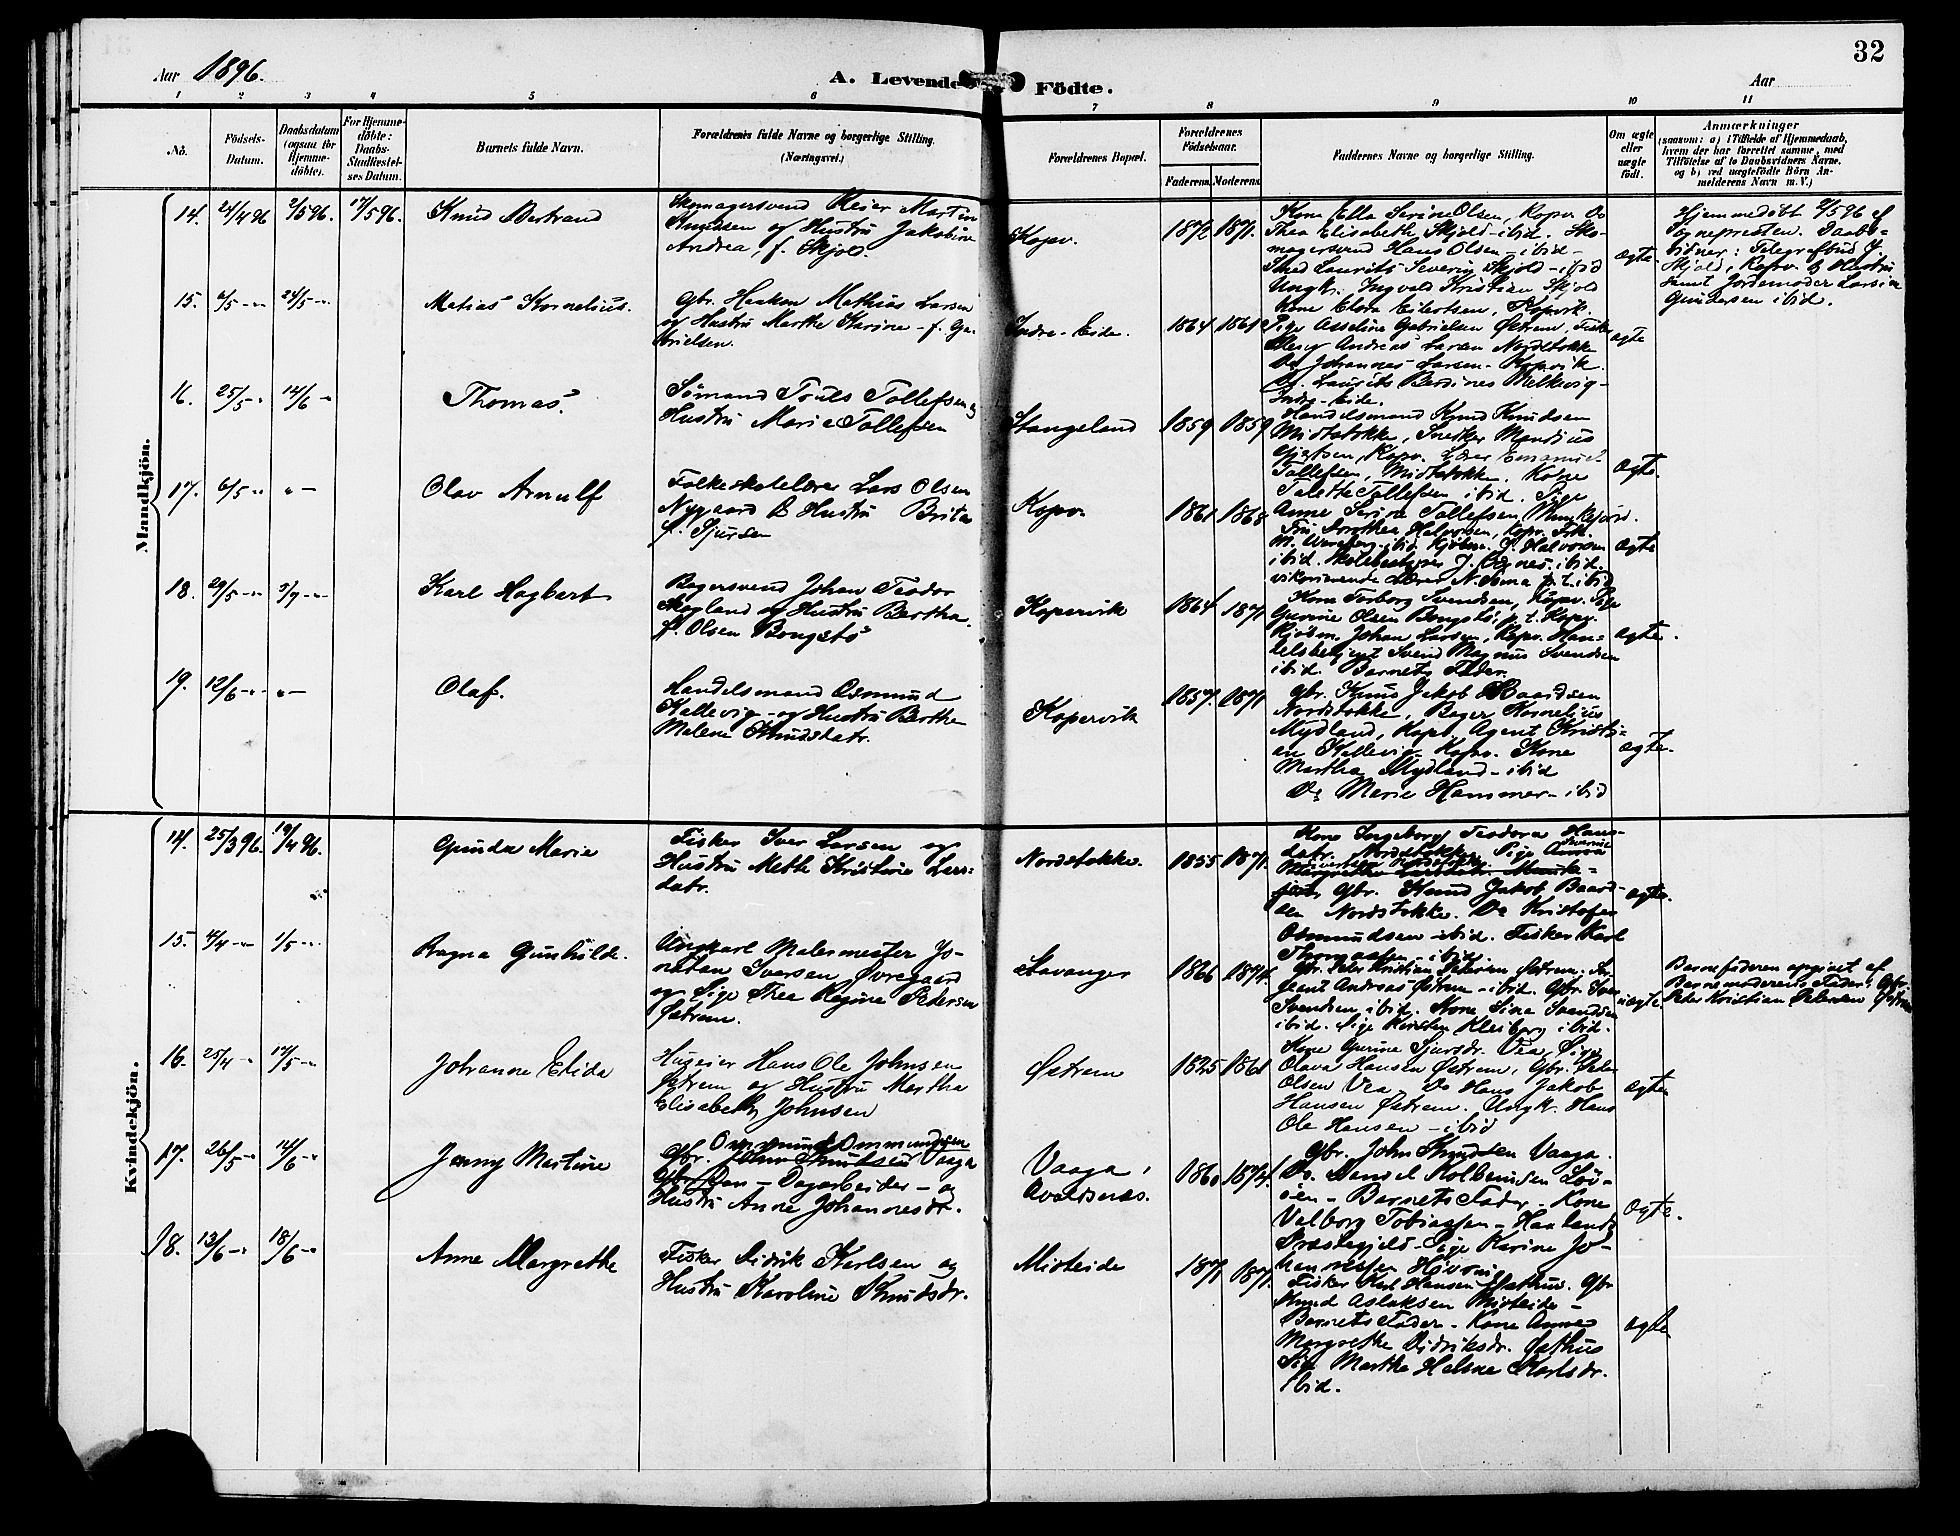 32
Aar 1896.
A. Levende Födte.
Aar
1 2 3 4 5 6 7 8 9 10 11
No.
Födsels-
Datum.
Daabsdatum
(ogsaa for
Hjemme-
döbte).
For Hjemme-
döbte:
Daabs-
Stadfæstel-
ses Datum.
Barnets fulde Navn.
Forældrenes fulde Navne og borgerlige Stilling.
(Næringsvei.)
Forældrenes Bopæl.
Forældrenes
Födselsaar.
Faderens. Moderens.
Faddernes Navne og borgerlige Stilling.
Om ægte
eller
uægte
födt.
Anmærkninger
(saasom: a) i Tilfælde af Hjemmedaab,
hvem der har forrettet samme, med
Tilföielse af to Daabsvidners Navne,
og b) ved uægtefödte Börn An-
melderens Navn m. V.)
Mandkjön.
14. 24/4 96 2/5 96. 17/5 96. Knud Bertrand
Skomagersvend Reier Martin
Knudsen og Hustru Jakobine
Andrea, f. Skjold.
Kopv.
1872 1871.
Kone Ella Serine Olsen, Kopv. Do
Thea Elisabeth Skjold - ibid. Sko-
magersvend Hans Olsen, ibid
Smed Laurits Severin Skjold - ibid
Ungk. Ingvald Kristian Skjold
ægte.
Hjemmedøbt 2/5 96 af
Sognepresten. Daabs-
vidner: Telegrafbud J.
Skjold, Kopv. & Hustru
samt Jordemoder Larsine
Gundersen ibid.
15. 6/5 -"- 24/5 -"- Matias Kornelius.
Gbr. Haaken Mathias Larsen
og Hustru Marthe Karine - f. Ga-
brielsen.
Indre-Eide.
1864 1861
Kone Elora Eilertsen, Kopvik.
Pige Asseline Gabrielsen Østrem, Fisker
Andreas Larsen Nordstokke
Do Johannes Larsen - Kopvik.
Laurits Berdines Melkevig -
Indre-Eide.
ægte
16. 25/5 -"- 14/6 -"- Thomas.
Sømand Truls Tollefsen og
Hustru Marie Tollefsen
Stangeland
1859 1859
Handelsmand Knud Knudsen
Midtstokke, Snedker Mandius
Kopv. Lærer Emanuel
Tollefsen, Midtstokke. Kone
Talette Tollefsen ibid. Pige
Anne Serine Tollefsen, Munkejord.
ægte.
17. 6/5 -"- "- Olav Arnulf
Folkeskolelærer Lars Olsen
Nygaard & Hustru Brita
f. Sjursen
Kopv.
1861 1868
Fru Dorothea Halvorsen, Kopv. Frk.
ibid. Kjøbm. J. Halvorsen
ibid. Skolebestyrer J. ibid.
vikarierende Lærer N. Soma p.t. ibid
ægte
18. 29/5 -"- 5/7 -"- Karl Hagbart
Bagersvend Johan Teodor
Skogland og Hustru Bertha
f. Olsen Bongstø
Kopervik
1864 1871
Kone Torborg Svendsen, Kopv. Pige
Gurine Olsen Bongstø, p.t. Kopv.
Kjøbm. Johan Larsen, Kopv. Han-
delsbetjent Svend Magnus Svendsen
ibid. Barnets Fader.
ægte.
19. 12/6 -"- "- Olaf.
Handelsmand Osmund
Kallevig - og Hustru Berthe
Malene Knudsdatr.
Kopervik
1857. 1871
Gbr. Knud Jakob Baardsen
Nordstokke, Bager Kornelius
Mydland, Kopv. Agent Kristi-
an Kallevig - Kopv. Kone
Martha Mydland - ibid
Do Marie Hammer - ibid
ægte.
Kvindekjön.
14. 25/3 96. 19/4 96. Gunda Marie
Fisker Iver Larsen og
Hustru Mette Kristine Lars-
datr.
Nordstokke.
1855 1871.
Kone Ingeborg Teodora Hans-
datr. Nordstokke, Pige
Gbr. Knud Jakob Baard-
sen Nordstokke. Do Kristofer
Osmundsen ibid. Fisker Karl
Thomassen, ibid.
ægte.
15. 4/4 -"- 1/5 -"- Ragna Gunhilde.
Ungkarl Malermester Jo-
natan Iversen Øvregaard
og Pige Thea Regine Pedersen
Østrem.
Stavanger
1866 1874.
Gbr. Peder Kristian Petersen Østrem. Ser-
geant Andreas Østrem - ibid. Gbr. Sven
Svendsen, ibid. Kone Sina Svendsen
ibid. Pige Kirsten Kleiberg ibid.
uægte.
Barnefaderen opgivet af
Barnemoderens Fader: Gbr.
Peder Kristian Petersen Østrem
16. 25/4 -"- 17/5 -"- Johanne Elida
Huseier Hans Ole Johnsen
Østrem og Hustru Martha
Elisabeth Johnsen
Østrem
1825 1861
Kone Gurine Sjursdr. Vea, Pige
Olava Hansen Østrem, Gbr. Peder
Olsen Vea - Do Hans Jakob
Hansen Østrem. Ungk. Hans
Ole Hansen - ibid
ægte
17. 26/5 -"- 14/6 -"- Jenny Martine
Ommund Ommundsen
Gbr. John Knudsen Vaaga
Dagarbeider - og
Hustru Anne Johannesdr.
Vaaga,
Avaldsnes.
1860 1874.
Gbr. John Knudsen Vaaga.
Do. Daniel Kolbeinsen Løv-
øen - Barnets Fader - Kone
Valborg Tobiassen - Haalands
Præstegjeld - Pige Karine Jo-
hannessen
ægte.
18. 13/6 -"- 18/6 -"- Anne Margrethe
Fisker Didrik Karlsen og
Hustru Karoline Knudsdr.
Midteide
1871 1871.
Fisker Karl Hansen Sæthus. Gbr
Knud Aslaksen Midteide -
Barnets Fader - Kone Anne
Margrethe Didriksdr. Sæthus
Pige Martha Helene Karlsdr.
ibid.
ægte